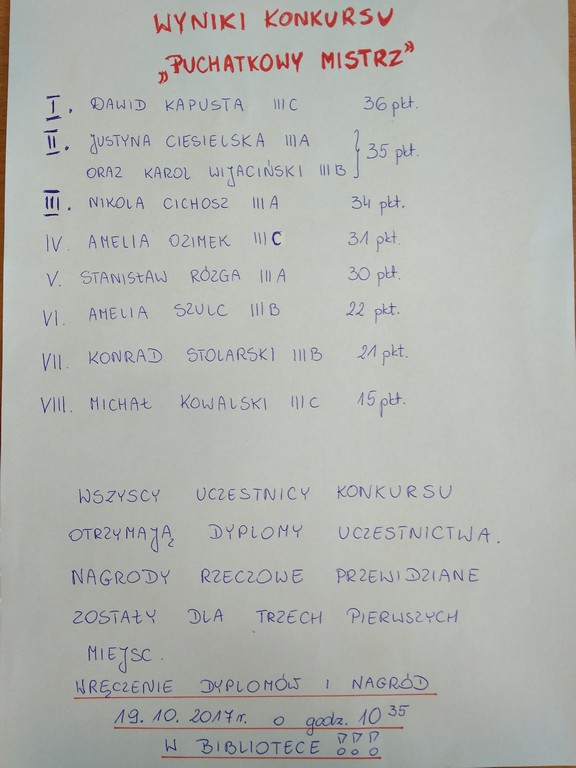 WYNIKI KONKURSU
„PUCHATKOWY MISTRZ”
I. DAWID KAPUSTA III C 36 pkt.
II. JUSTYNA CIESIELSKA III A
ORAZ KAROL WIJACIŃSKI III B } 35 pkt.
III. NIKOLA CICHOSZ III A 34 pkt.
IV. AMELIA OZIMEK III C 31 pkt.
V. STANISŁAW RÓZGA III A 30 pkt.
VI. AMELIA SZULC III B 22 pkt.
VII. KONRAD STOLARSKI III B 21 pkt.
VIII. MICHAŁ KOWALSKI III C 15 pkt.
WSZYSCY UCZESTNICY KONKURSU
OTRZYMAJĄ DYPLOMY UCZESTNICTWA.
NAGRODY RZECZOWE PRZEWIDZIANE
ZOSTAŁY DLA TRZECH PIERWSZYCH
MIEJSC.
WRĘCZENIE DYPLOMÓW I NAGRÓD
19.10.2017r. o godz. 10 35
W BIBLIOTECE !!!